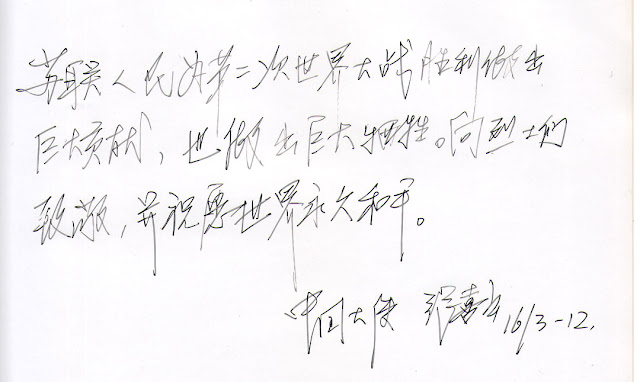 苏联人民为第二次世界大战胜利做出
巨大贡献，也做出巨大牺牲。向烈士们
致敬，并祝愿世界永久和平。
中国大使 张喜云 16/3-12.